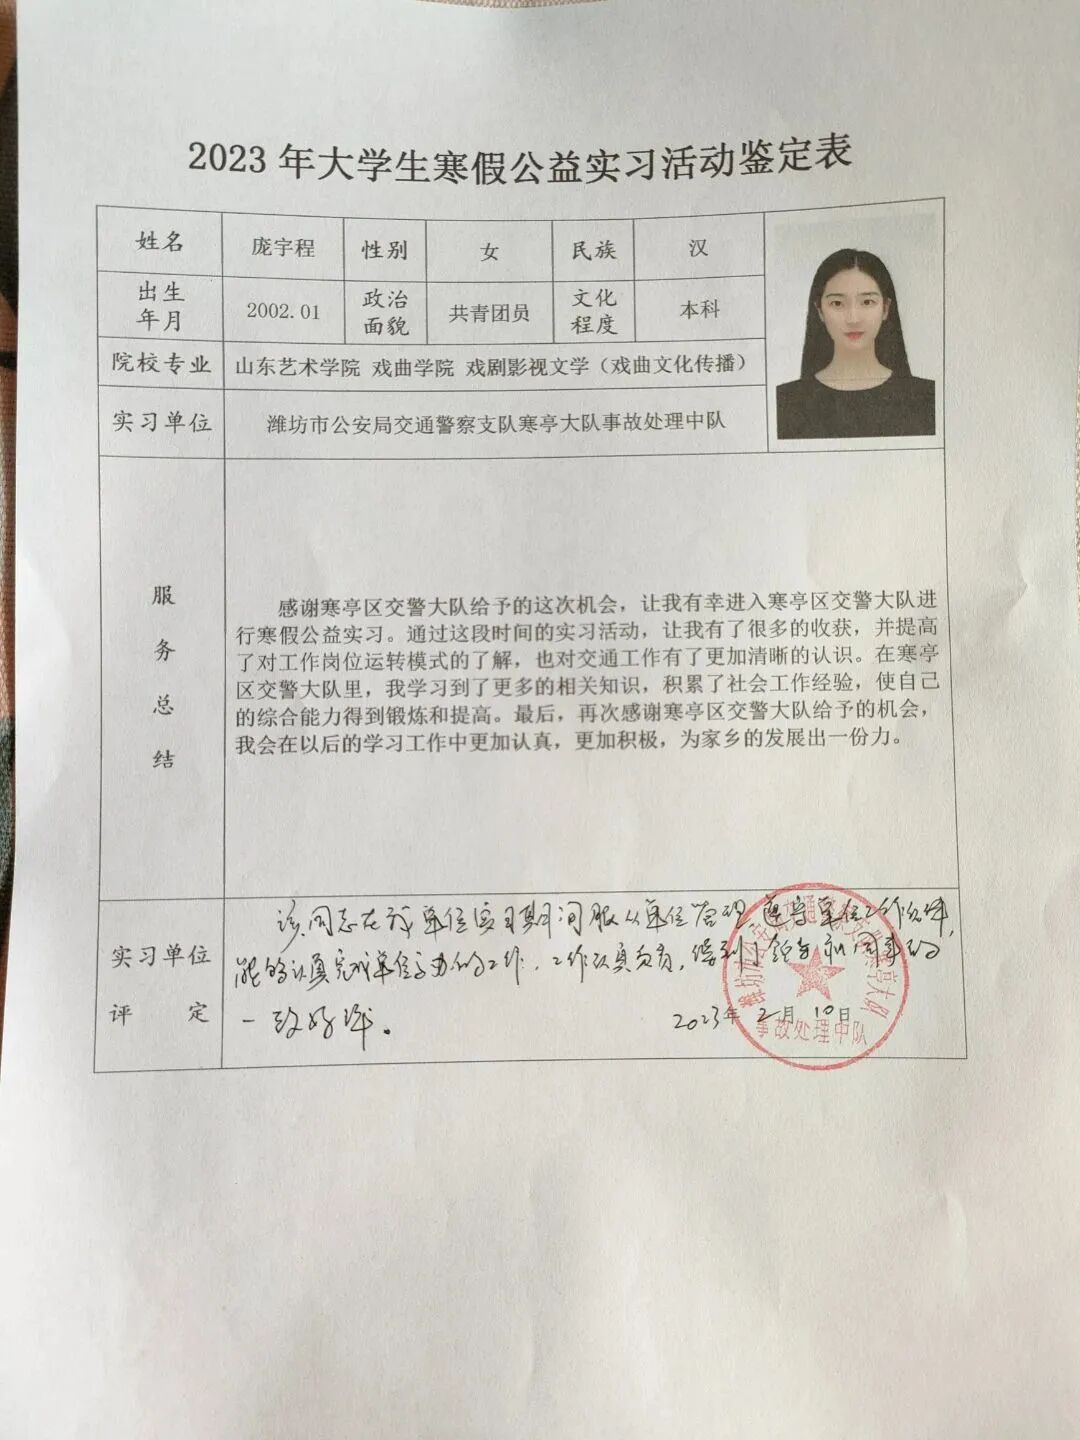 2023年大学生寒假公益实习活动鉴定表
姓名 庞宇程 性别 女 民族 汉
出生年月 2002.01 政治面貌 共青团员 文化程度 本科
院校专业 山东艺术学院 戏曲学院 戏剧影视文学（戏曲文化传播）
实习单位 潍坊市公安局交通警察支队寒亭大队事故处理中队
服务总结
感谢寒亭区交警大队给予的这次机会，让我有幸进入寒亭区交警大队进
行寒假公益实习。通过这段时间的实习活动，让我有了很多的收获，并提高
了对工作岗位运转模式的了解，也对交通工作有了更加清晰的认识。在寒亭
区交警大队里，我学习到了更多的相关知识，积累了社会工作经验，使自己
的综合能力得到锻炼和提高。最后，再次感谢寒亭区交警大队给予的机会，
我会在以后的学习工作中更加认真，更加积极，为家乡的发展出一份力。
实习单位
评定
该同志在我单位实习期间服从单位管理，遵守单位工作纪律，
能够认真完成单位交办的工作，工作认真负责，得到了领导和同事的
一致好评。
2023年2月10日
潍坊市公安局交通警察支队寒亭大队
事故处理中队